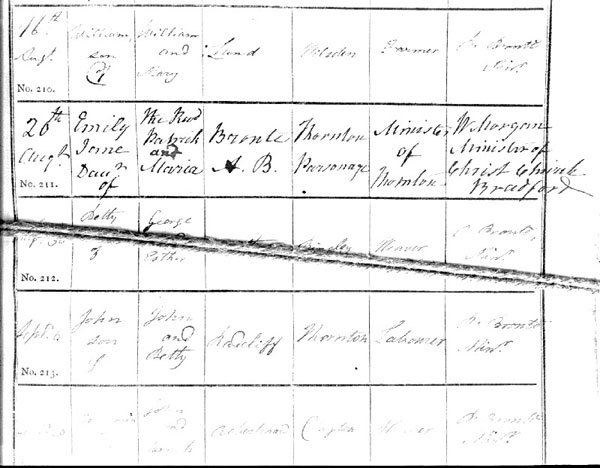 16th Augt. William son of William and Mary Lund Wilsden Farmer P. Bronte Minr.
No. 210.
20th Augt. Emily Jane Daur of The Revd Patrick and Maria Bronte A. B. Thornton Parsonage Minister of Thornton W. Morgan Minister of Christ Church Bradford
No. 211.
Betty George Esther Bingley Weaver P. Bronte Minr.
No. 212.
Sept. John son of John and Betty Radcliff Thornton Labourer P. Bronte Minr.
No. 213.
John and Clayton P. Bronte Minr.